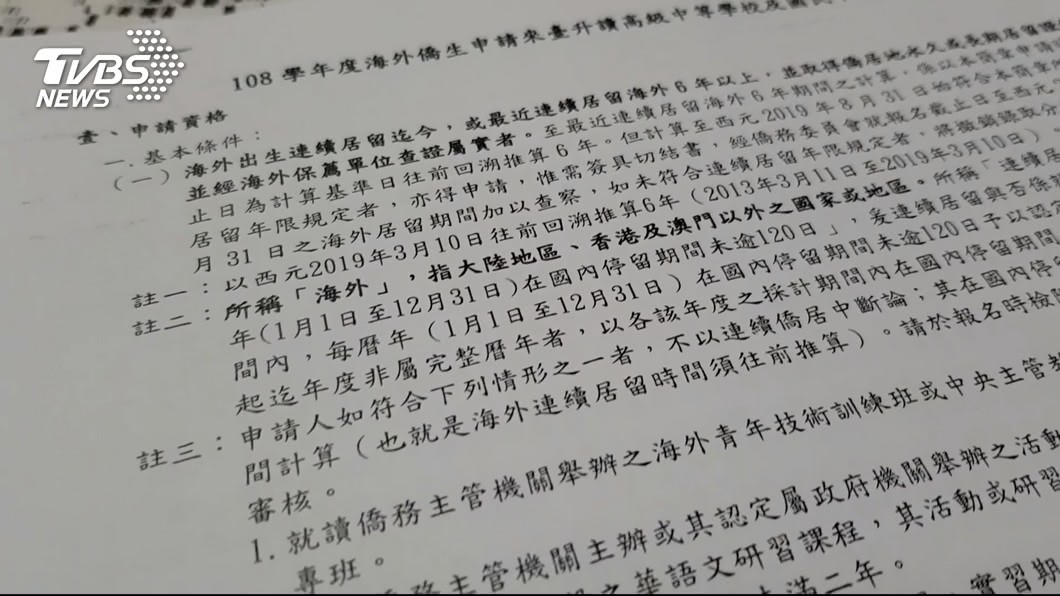 TVBS
NEWS
108 學年度海外僑生申請來臺升讀高級中等學校及國民
壹、申請資格
一. 基本條件：
(一) 海外出生連續居留迄今，或最近連續居留海外 6 年以上，並取得僑居地永久或長期居留證
並經海外保薦單位查證屬實者。至最近連續居留海外 6 年期間之計算，係以本簡章申請
止日為計算基準日往前回溯推算 6 年。但計算至西元 2019 年 8 月 31 日始符合本簡章
居留年限規定者，亦得申請，惟需簽具切結書，經僑務委員會就報名截止日至西元
月 31 日之海外居留期間加以查察，如未符合連續居留年限規定者，將撤銷錄取分
註一：以西元2019年3月10日往前回溯推算6年（2013年3月11日至2019年3月10日）
註二：所稱「海外」，指大陸地區、香港及澳門以外之國家或地區。所稱「連續居
年(1月1日至12月31日)在國內停留期間未逾120日」，爰連續居留與否係
間內，每曆年（1月1日至12月31日）在國內停留期間未逾120日予以認
起迄年度非屬完整曆年者，以各該年度之採計期間內在國內停留期間
註三：申請人如符合下列情形之一者，不以連續僑居中斷論；其在國內停
間計算（也就是海外連續居留時間須往前推算）。請於報名時檢
審核。
1. 就讀僑務主管機關舉辦之海外青年技術訓練班或中央主管
專班。
務主管機關主辦或其認定屬政府機關舉辦之活動
之華語文研習課程，其活動或研習
滿二年。
實習期